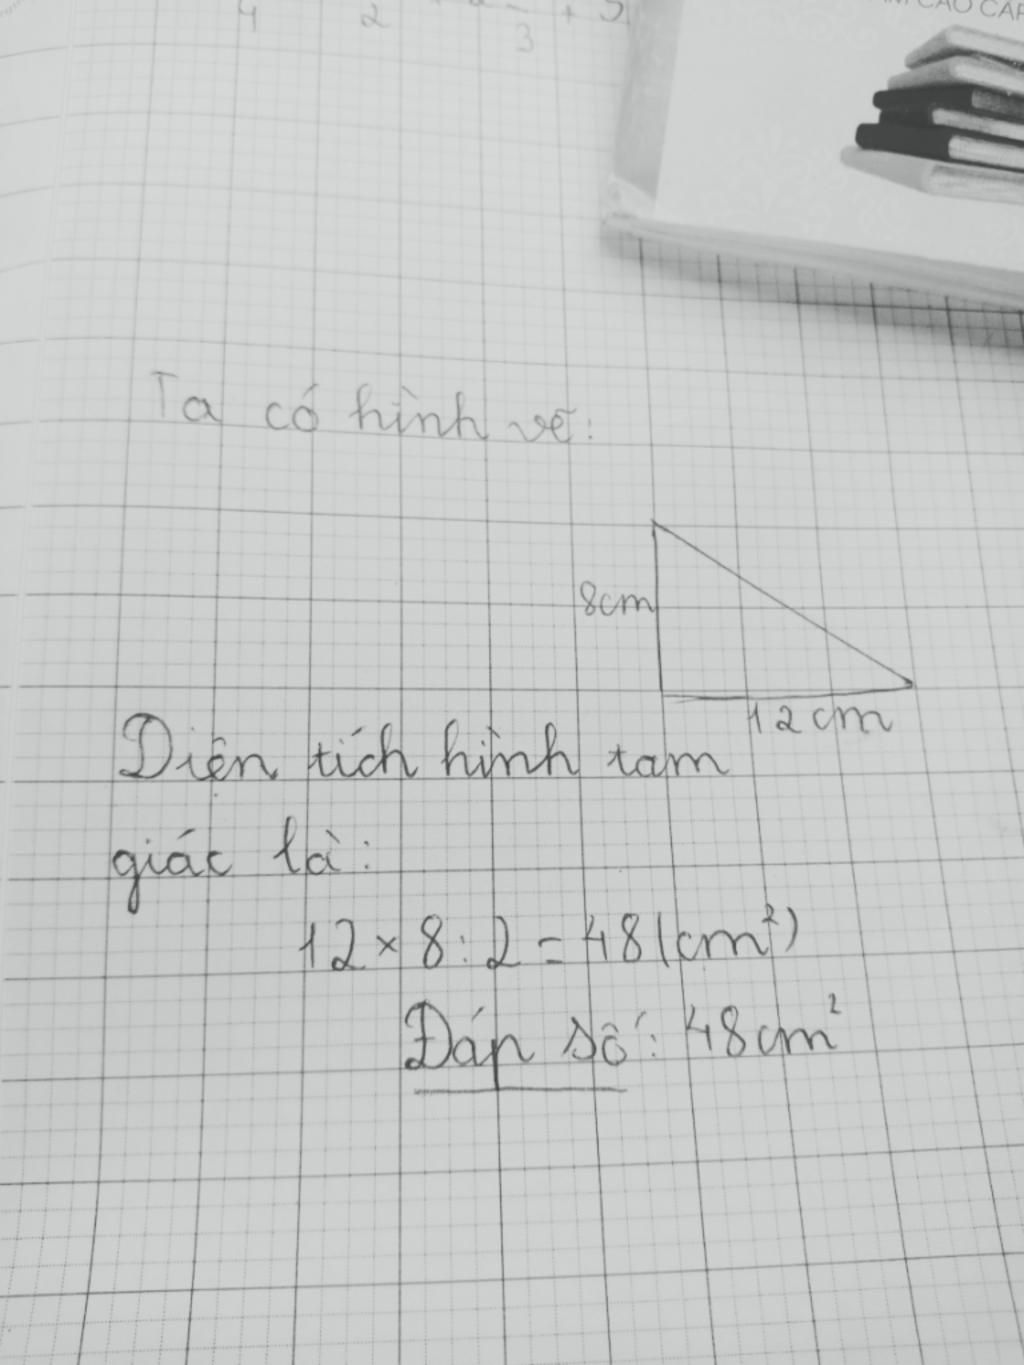 4 2 3 +
CAO CẤP
Ta có hình vẽ:
8cm
12cm
Diện tích hình tam
giác là:
12 × 8 : 2 = 48 (cm²)
Đáp số: 48cm²